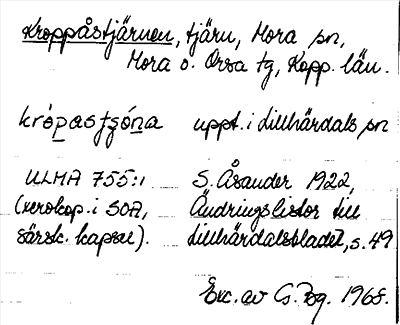 Kroppåstjärnen, tjärn, Mora sn,
Mora o. Orsa tg, Kopp. län.
krópastjǫ́na uppt. i Lillhärdals sn
ULMA 755:1 S. Åsander 1922,
(xerokop. i SOA, Ändringslistor till
särsk. kapsel). Lillhärdalsbladet, s. 49
Exc. av G. Bg. 1968.